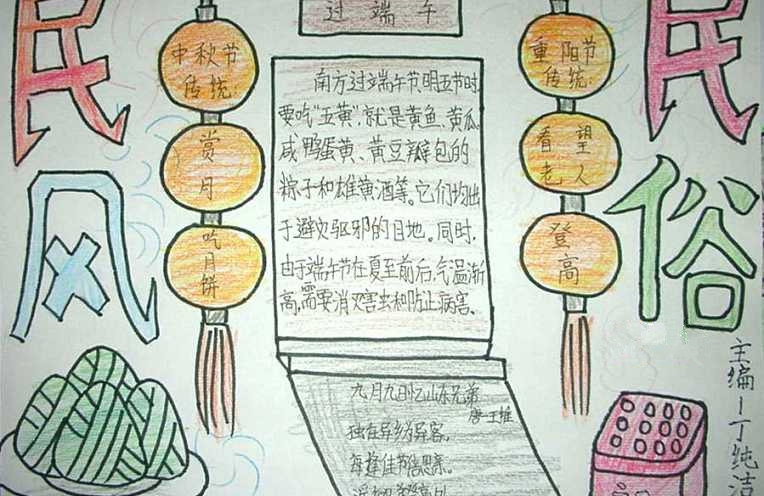 民
风
过端午
中秋节
传统:
赏
月
吃月饼
南方过端午节明五节时,
要吃“五黄”,就是黄鱼、黄瓜、
咸鸭蛋黄、黄豆瓣包的
粽子和雄黄酒等。它们均出
于避灾驱邪的目地。同时,
由于端午节在夏至前后,气温渐
高,需要消灭害虫和防止病害。
九月九日忆山东兄弟
唐 王维
独在异乡为异客,
每逢佳节倍思亲。
重阳节
传统:
看望
老人
登
高
民
俗
主编—丁纯洁